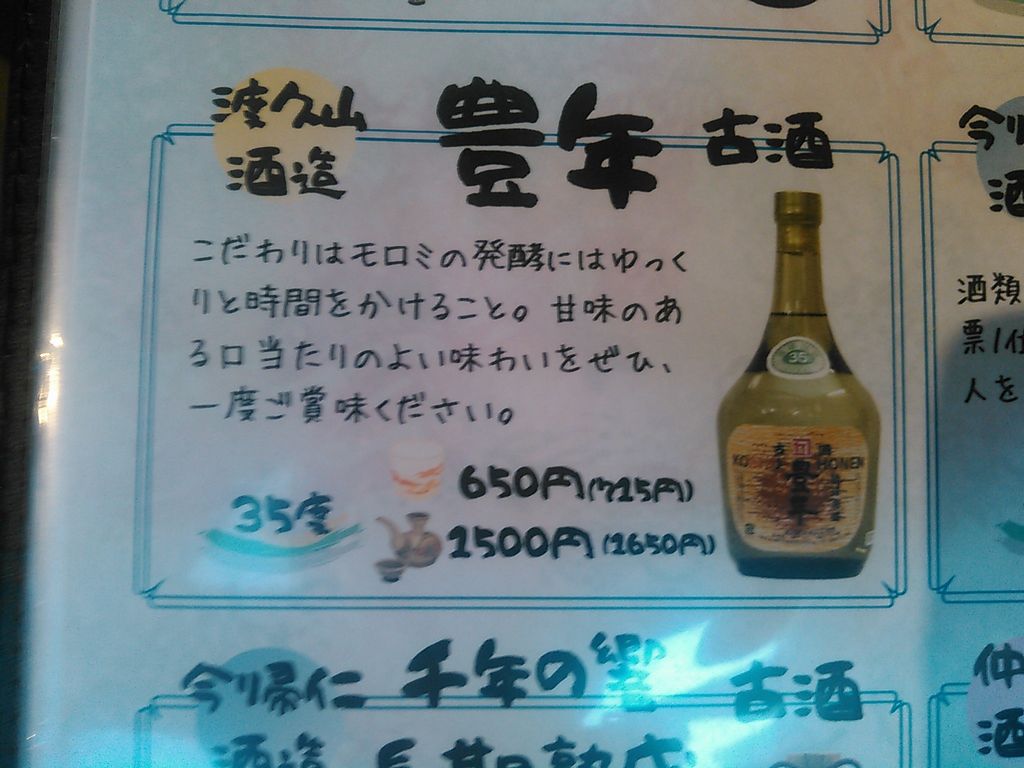 渡久山
酒造
豊年 古酒
こだわりはモロミの発酵にはゆっく
りと時間をかけること。甘味のあ
る口当たりのよい味わいをぜひ、
一度ご賞味ください。
35度
650円(715円)
1500円(1650円)
35
古酒
KOSHU HONEN
豊年
今帰仁
酒造
千年の響
長期熟成
古酒
今帰
酒
酒類
票1位
人を
仲
酒